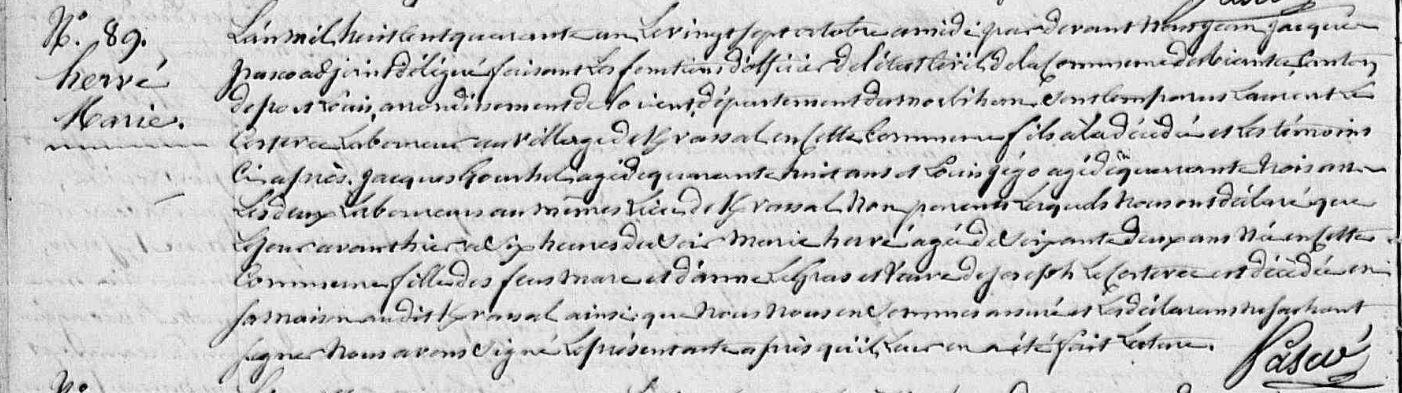 N.° 89.
hervé
Marie.
L'an mil huit cent quarante un le vingt sept octobre a midi par devant Nous jean jacques
pasco adjoint délégué faisant les fonctions d'officier de l'état Civil de la Commune de Riantec, Canton
de port Louis, arrondissement de lorient, département du morbihan, Sont Comparus Laurent Le
Corterec Laboureur au village de Krassal en Cette Commune fils a la décédée et les témoins
Ci après, jacques Gourhel agé de quarante huit ans et Louis jégo agé de quarante trois ans
Les deux Laboureurs au mêmes Lieu de Krassal Non parents Lesquels Nous ont délaré que
Le jour avant hier a Six heures du Soir Marie hervé agée de Soixante deux ans Née en Cette
Commune fille des feus marc et d'anne Le Gras et Veuve de joseph Le Corterec est décédée en
sa maison audit Krassal ainsi que Nous Nous en Sommes assuré et Les délarans ne sachant
signer Nous avons Signé Le présent acte après qu'il Leur en a été fait Lecture.
Pasco
N.°